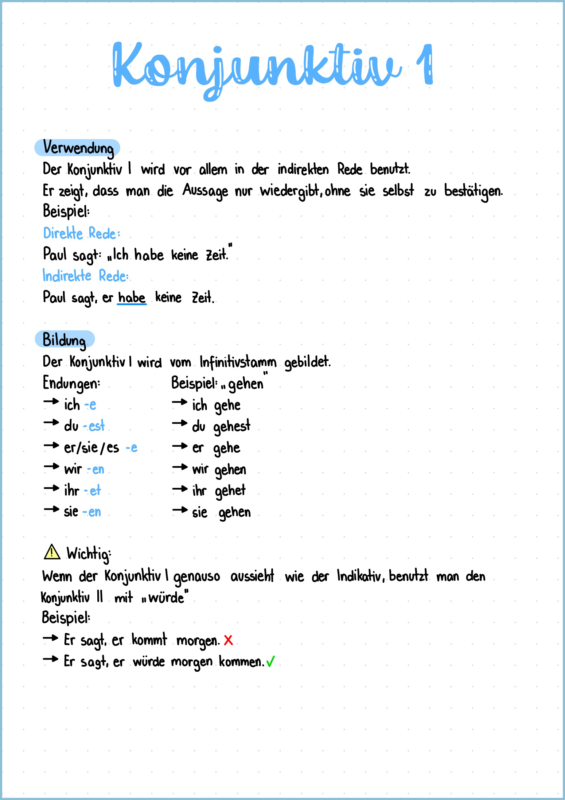 Konjunktiv 1
Verwendung
Der Konjunktiv I wird vor allem in der indirekten Rede benutzt.
Er zeigt, dass man die Aussage nur wiedergibt, ohne sie selbst zu bestätigen.
Beispiel:
Direkte Rede:
Paul sagt: „Ich habe keine Zeit."
Indirekte Rede:
Paul sagt, er habe keine Zeit.
Bildung
Der Konjunktiv I wird vom Infinitivstamm gebildet.
Endungen: Beispiel: „gehen"
→ ich -e → ich gehe
→ du -est → du gehest
→ er/sie/es -e → er gehe
→ wir -en → wir gehen
→ ihr -et → ihr gehet
→ sie -en → sie gehen
⚠ Wichtig:
Wenn der Konjunktiv I genauso aussieht wie der Indikativ, benutzt man den
Konjunktiv II mit „würde"
Beispiel:
→ Er sagt, er kommt morgen. X
→ Er sagt, er würde morgen kommen. ✓